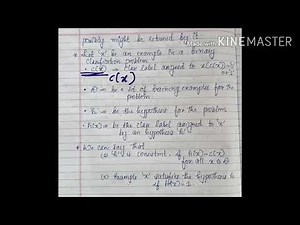 possibly might be returned by it.
Made with KINEMASTER
• Let 'x' be an example in a binary
classification problem
• c(x) → Class label assigned to x
c(x)
• D → be a set of training examples for
the problem
• h → be the hypothesis for the problem
• h(x) → be the class label assigned to 'x'
by an hypothesis 'h'
• We can say that
(i) 'h' is consistent, if h(x)=c(x)
for all x ∈ D
(ii) Example 'x' satisfies the hypothesis h
if h(x)=1.